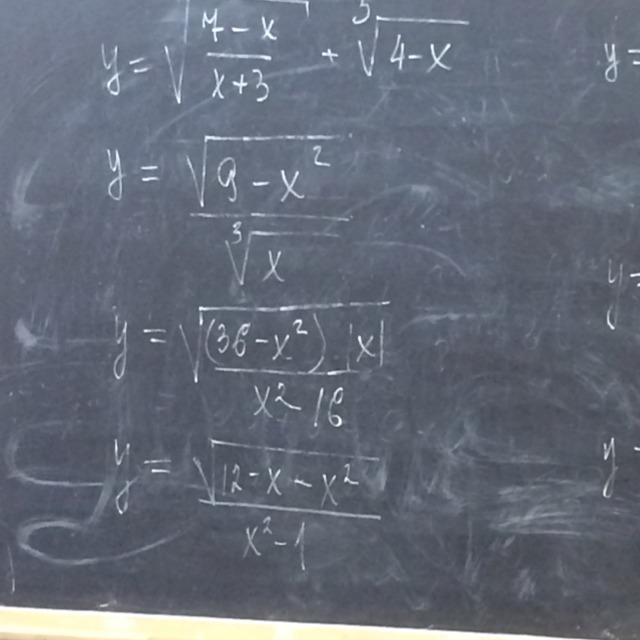 y = √((7-x)/(x+3)) + ⁵√(4-x)
y = √(9-x²)/³√x
y = √((36-x²)·|x|)/(x²-16)
y = √(12-x-x²)/(x²-1)
y =
y =
y